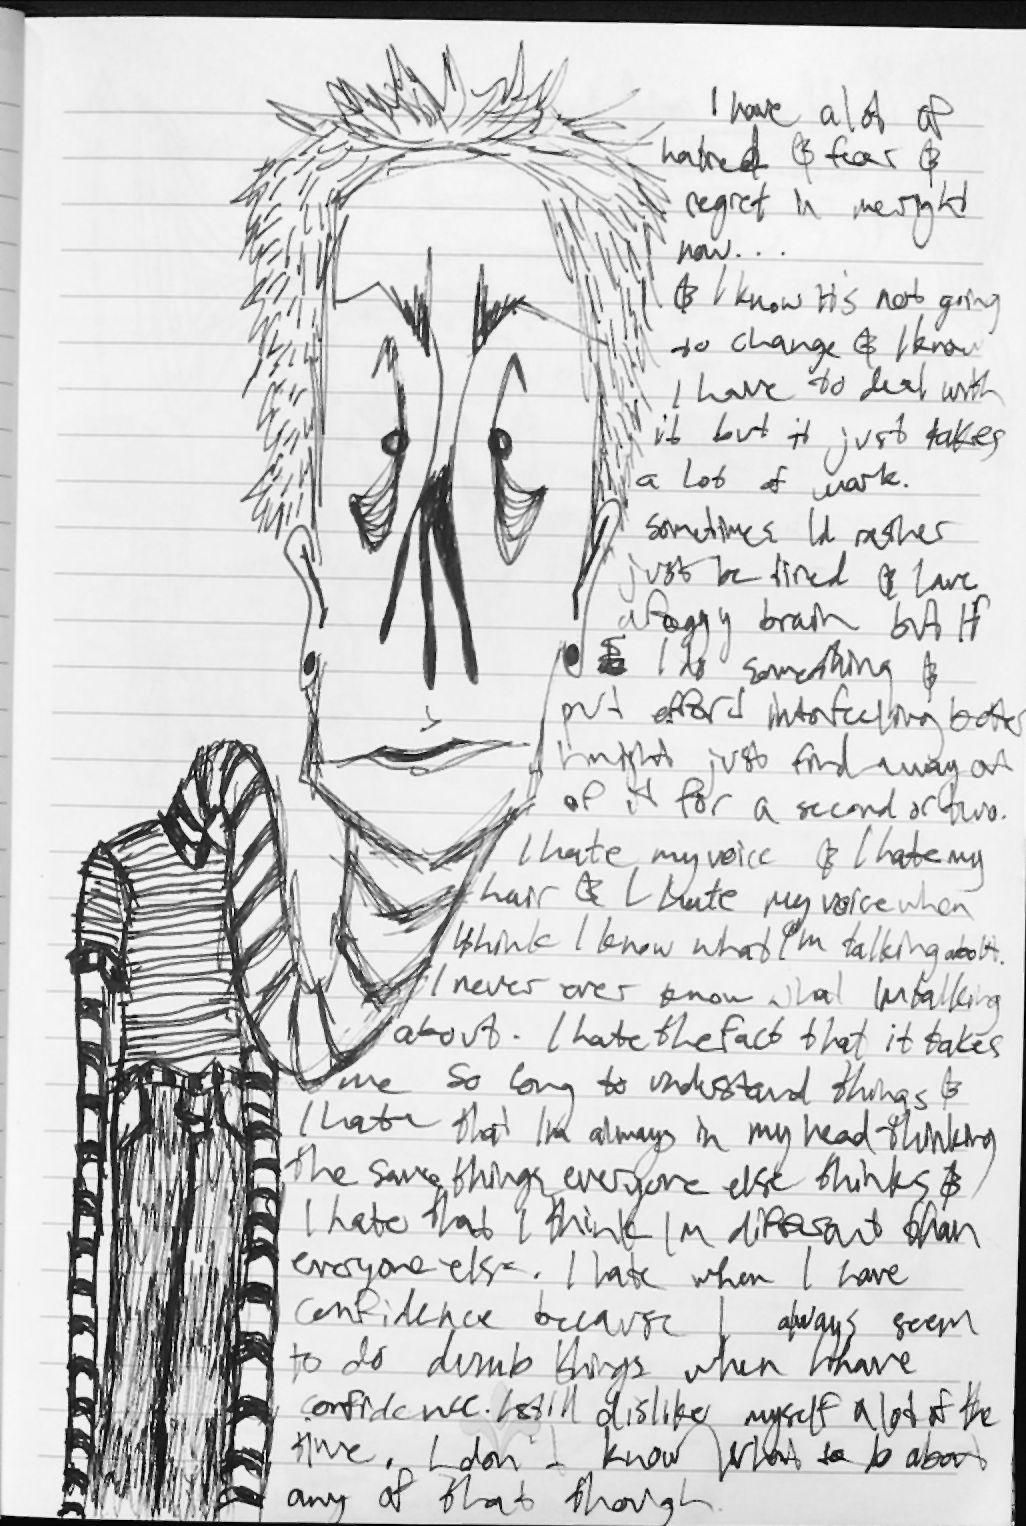 I have a lot of
hatred & fear &
regret in me right
now....
& I know it's not going
to change & I know
I have to deal with
it but it just takes
a lot of work.
sometimes I'd rather
just be tired & have
a foggy brain but if
I do something &
put effort into feeling better
I might just find a way out
of it for a second or two.
I hate my voice & I hate my
hair & I hate my voice when
I think I know what I'm talking about.
I never ever know what I'm talking
about. I hate the fact that it takes
me so long to understand things &
I hate that I'm always in my head thinking
the same things everyone else thinks &
I hate that I think I'm different than
everyone else. I hate when I have
confidence because I always seem
to do dumb things when I have
confidence. I still dislike myself a lot of the
time. I don't know what to do about
any of that though.